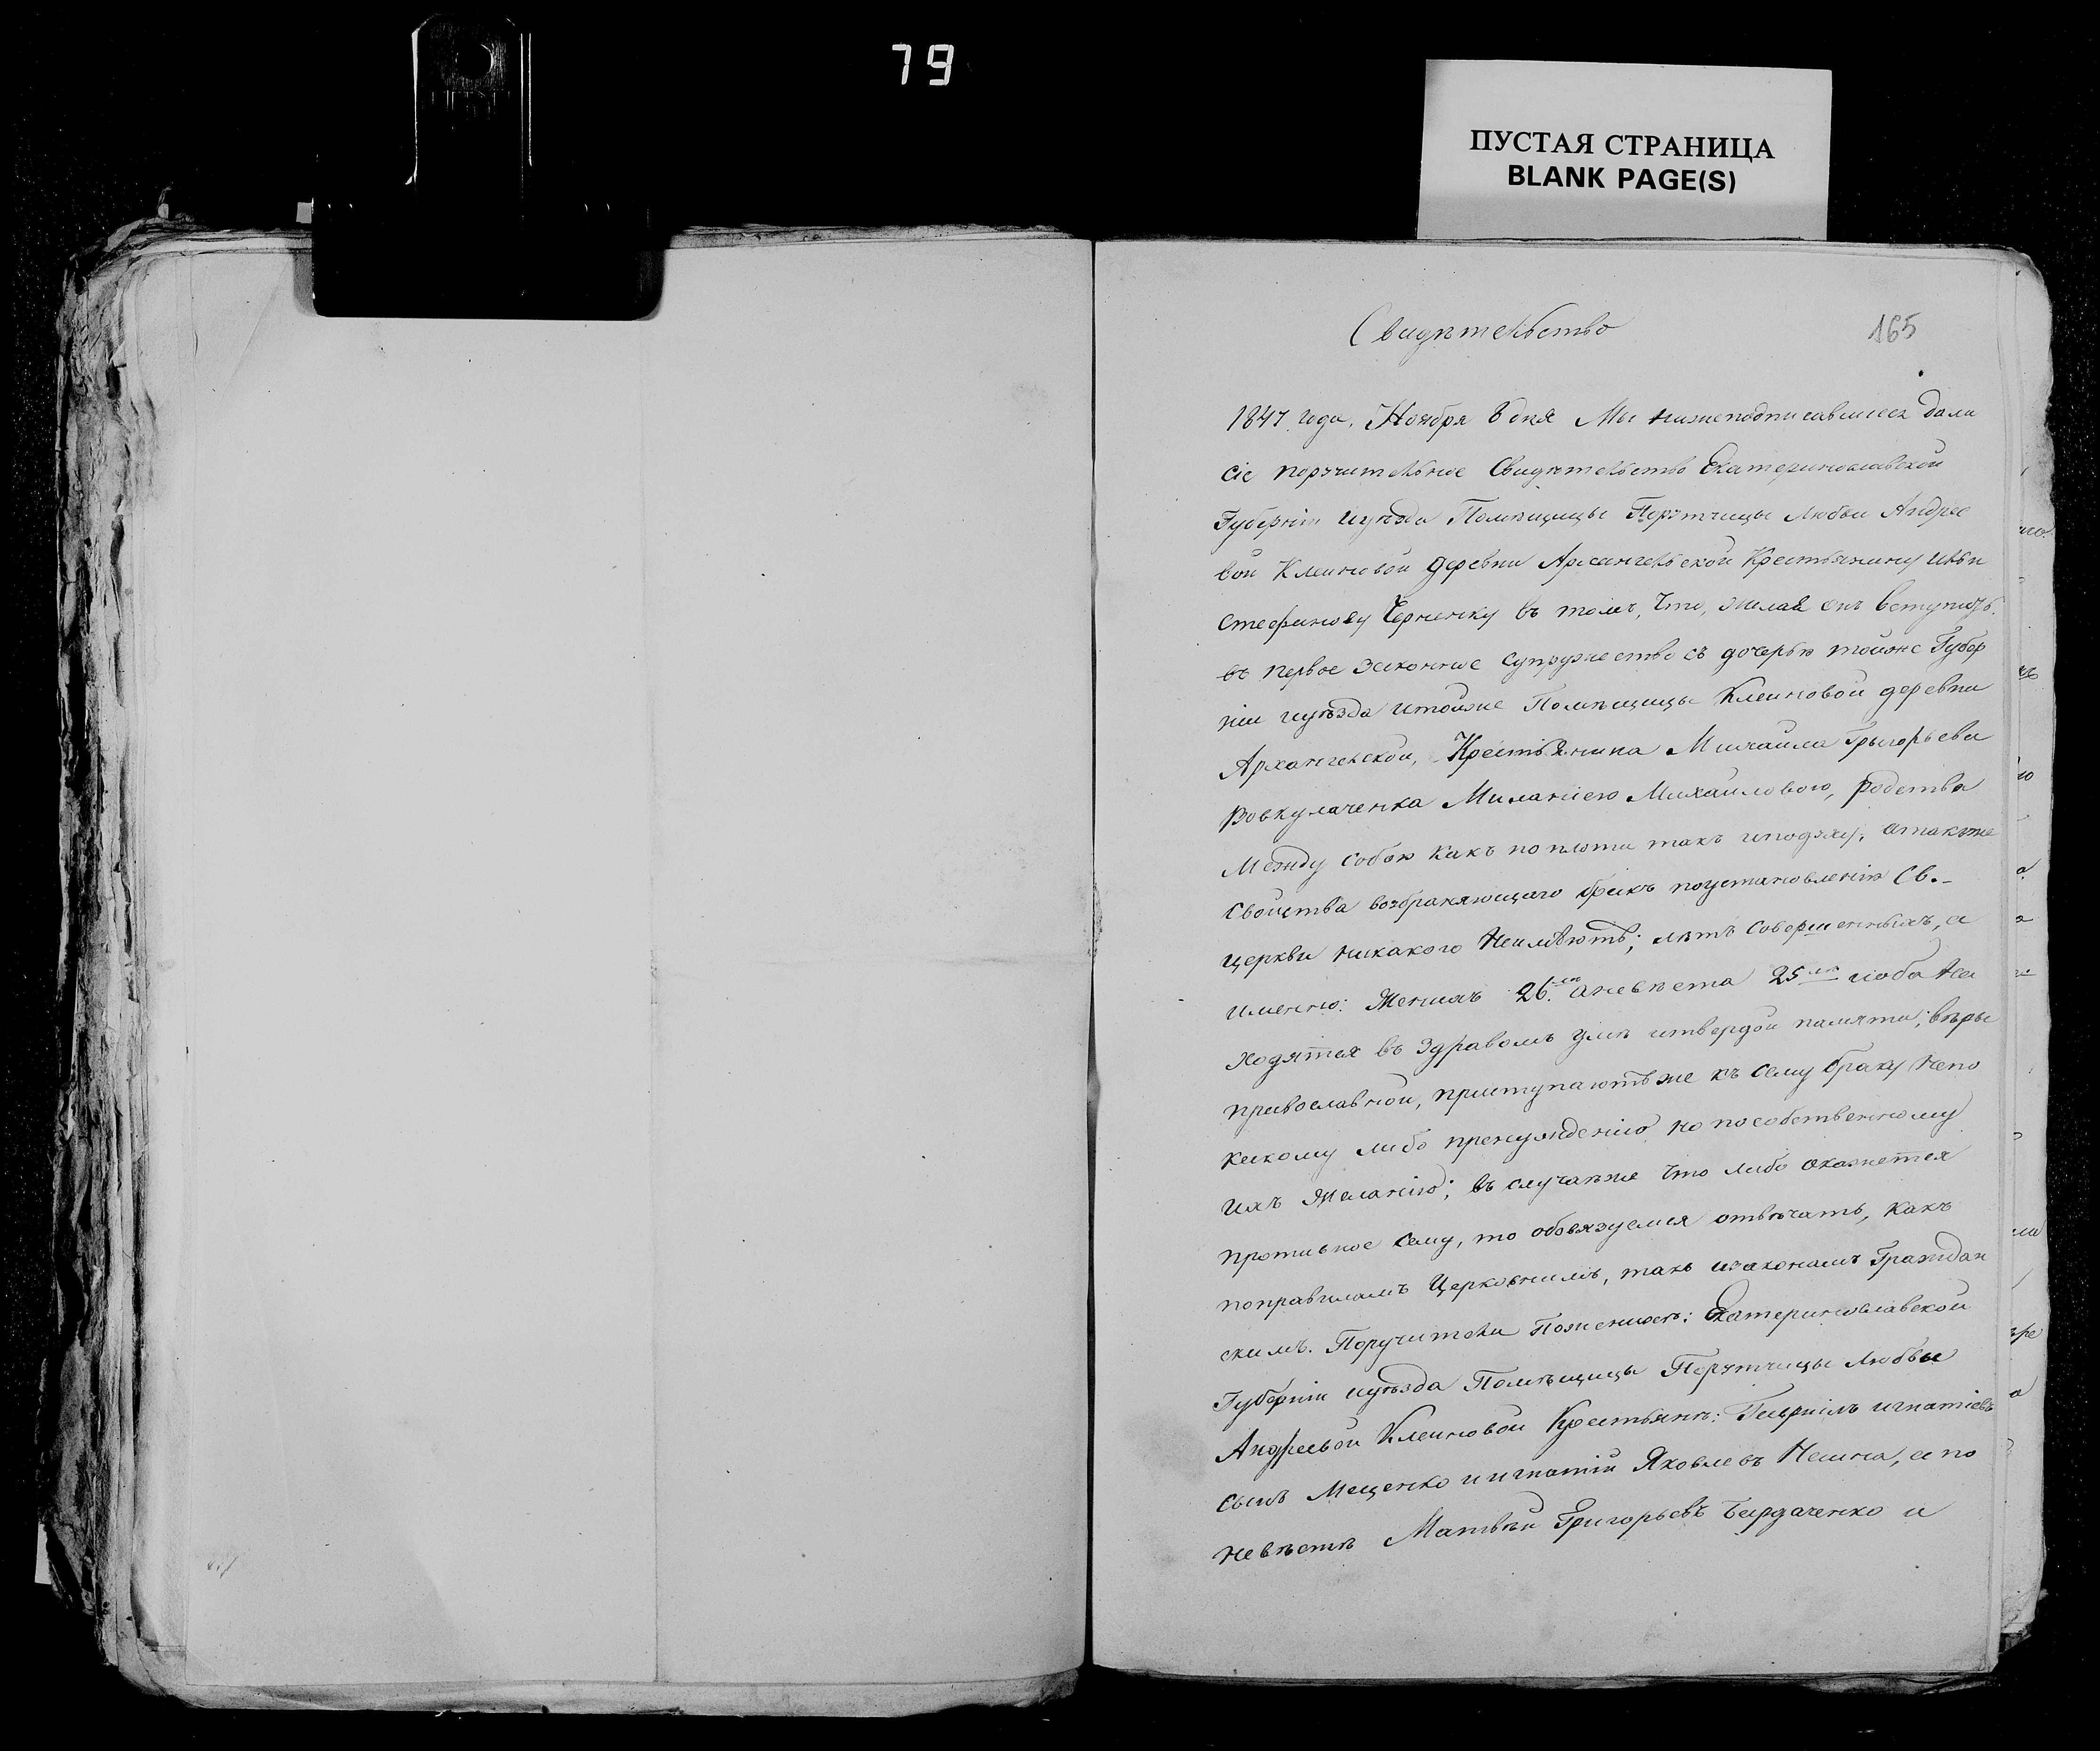 79
ПУСТАЯ СТРАНИЦА
BLANK PAGE(S)
Свидѣтельство
165
1847 года, Ноября 6 дня Мы нижеподписавшиеся дали
сіе поручительное Свидѣтельство Екатеринославской
Губерніи иуѣзда Помѣщицы Порутчицы Любви Андрее
вой Клеиновой деревни Архангельской Крестьянину
Стефанову Черненку въ томъ, что, желая онъ вступить
въ первое законное супружество съ дочерью тойже Губер
ніи иуѣзда итойже Помѣщицы Клеиновой деревни
Архангельской, Крестьянина Михаила Григорьева
Вовкулаченка Миланіею Михаиловою, родства
Между собою какъ по плоти такъ иподуху, атакже
свойства возбраняющаго бракъ поустановленію Св.
церкви никакого Неимѣютъ; лѣтъ совершенныхъ, а
именно: Женихъ 26. аневѣста 25 иоба На
ходятся въ здравомъ умѣ итвердой памяти; вѣры
православной, приступаютъже къ сему браку Непо
какому либо пренужденію но пособственному
ихъ желанію; въ случаѣже что либо окажется
противное сему, то обовязуемся отвѣчать, какъ
поправиламъ Церковнимъ, такъ изаконамъ Граждан
скимъ. Поручители Поженихѣ: Екатеринославской
Губерніи иуѣзда Помѣщицы Порутчицы Любви
Андреевой Клеиновой Крестьянѣ: Гавріилъ игнатіевъ
сынъ Мещенко иигнатій Яковлевъ а по
невѣстѣ Матвѣй Григорьевъ Бардаченко и